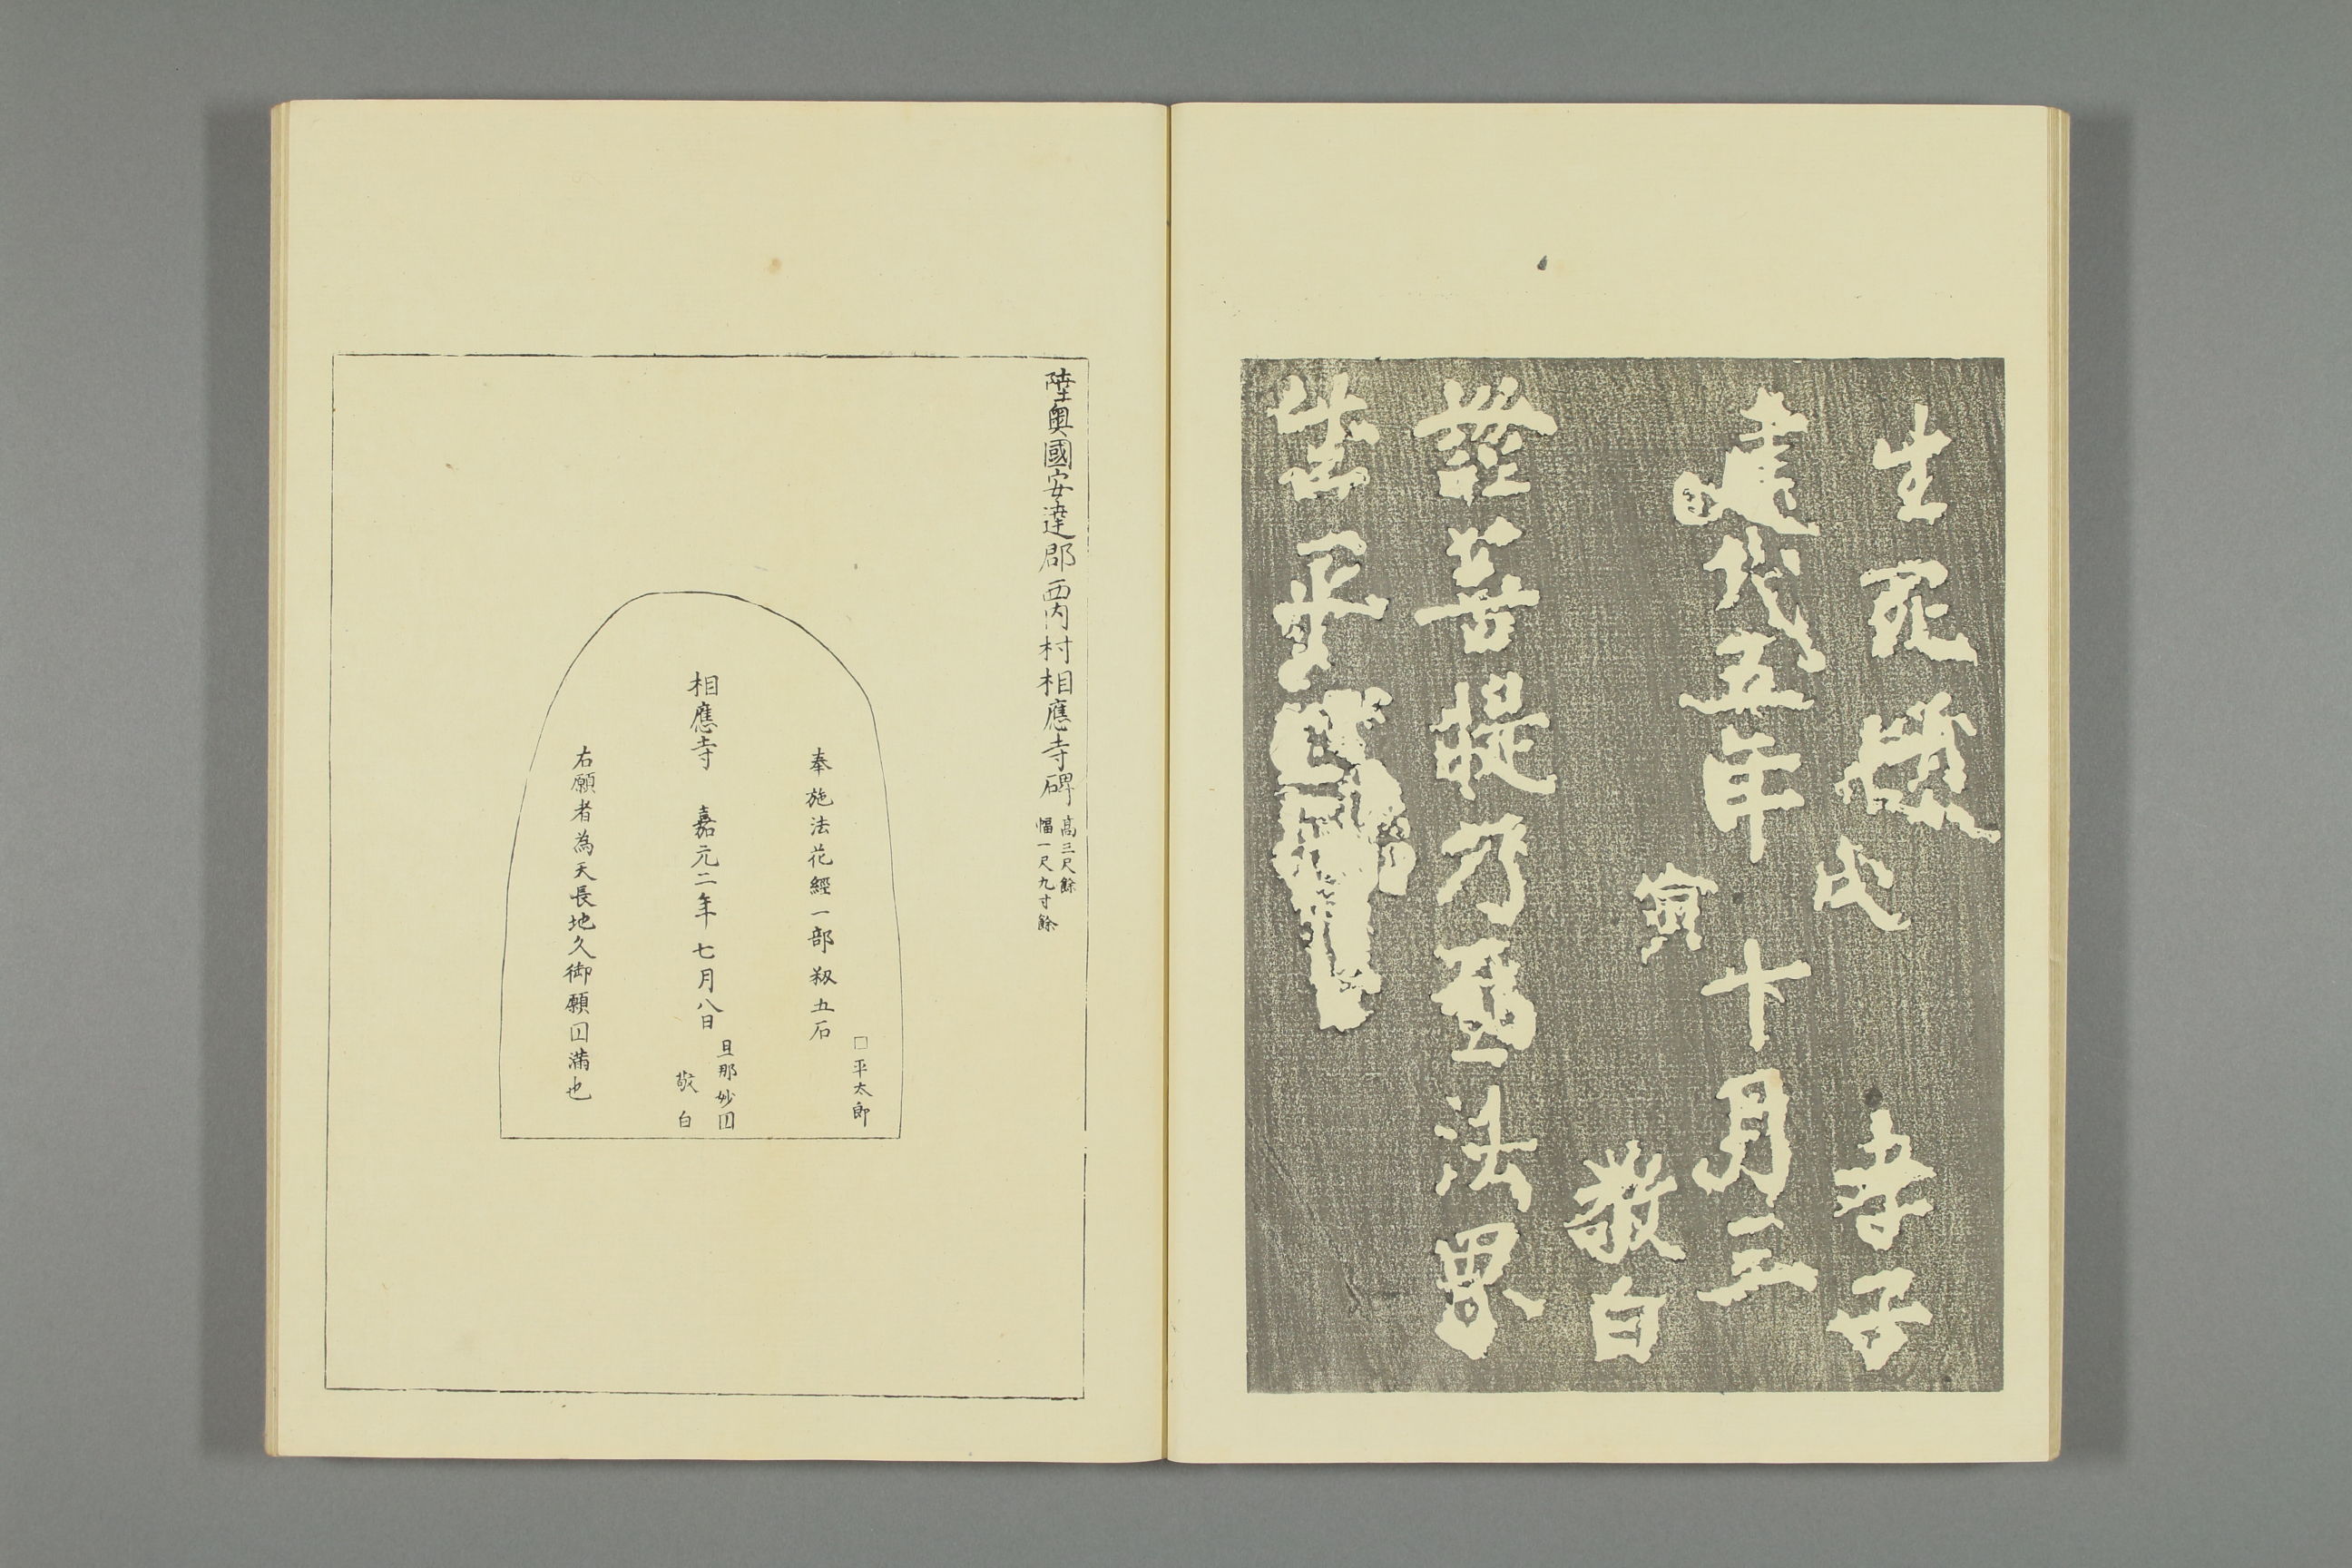 生死殘
戊
孝子
建
五年
十月三
日
寅
敬白
證菩提乃至法界
平等
陸奥國安達郡西内村相應寺碑
高三尺餘
幅一尺九寸餘
□平太郎
奉施法花經一部籾五石
相應寺 嘉元二年七月八日
旦那妙囙
敬白
右願者為天長地久御願囙滿也